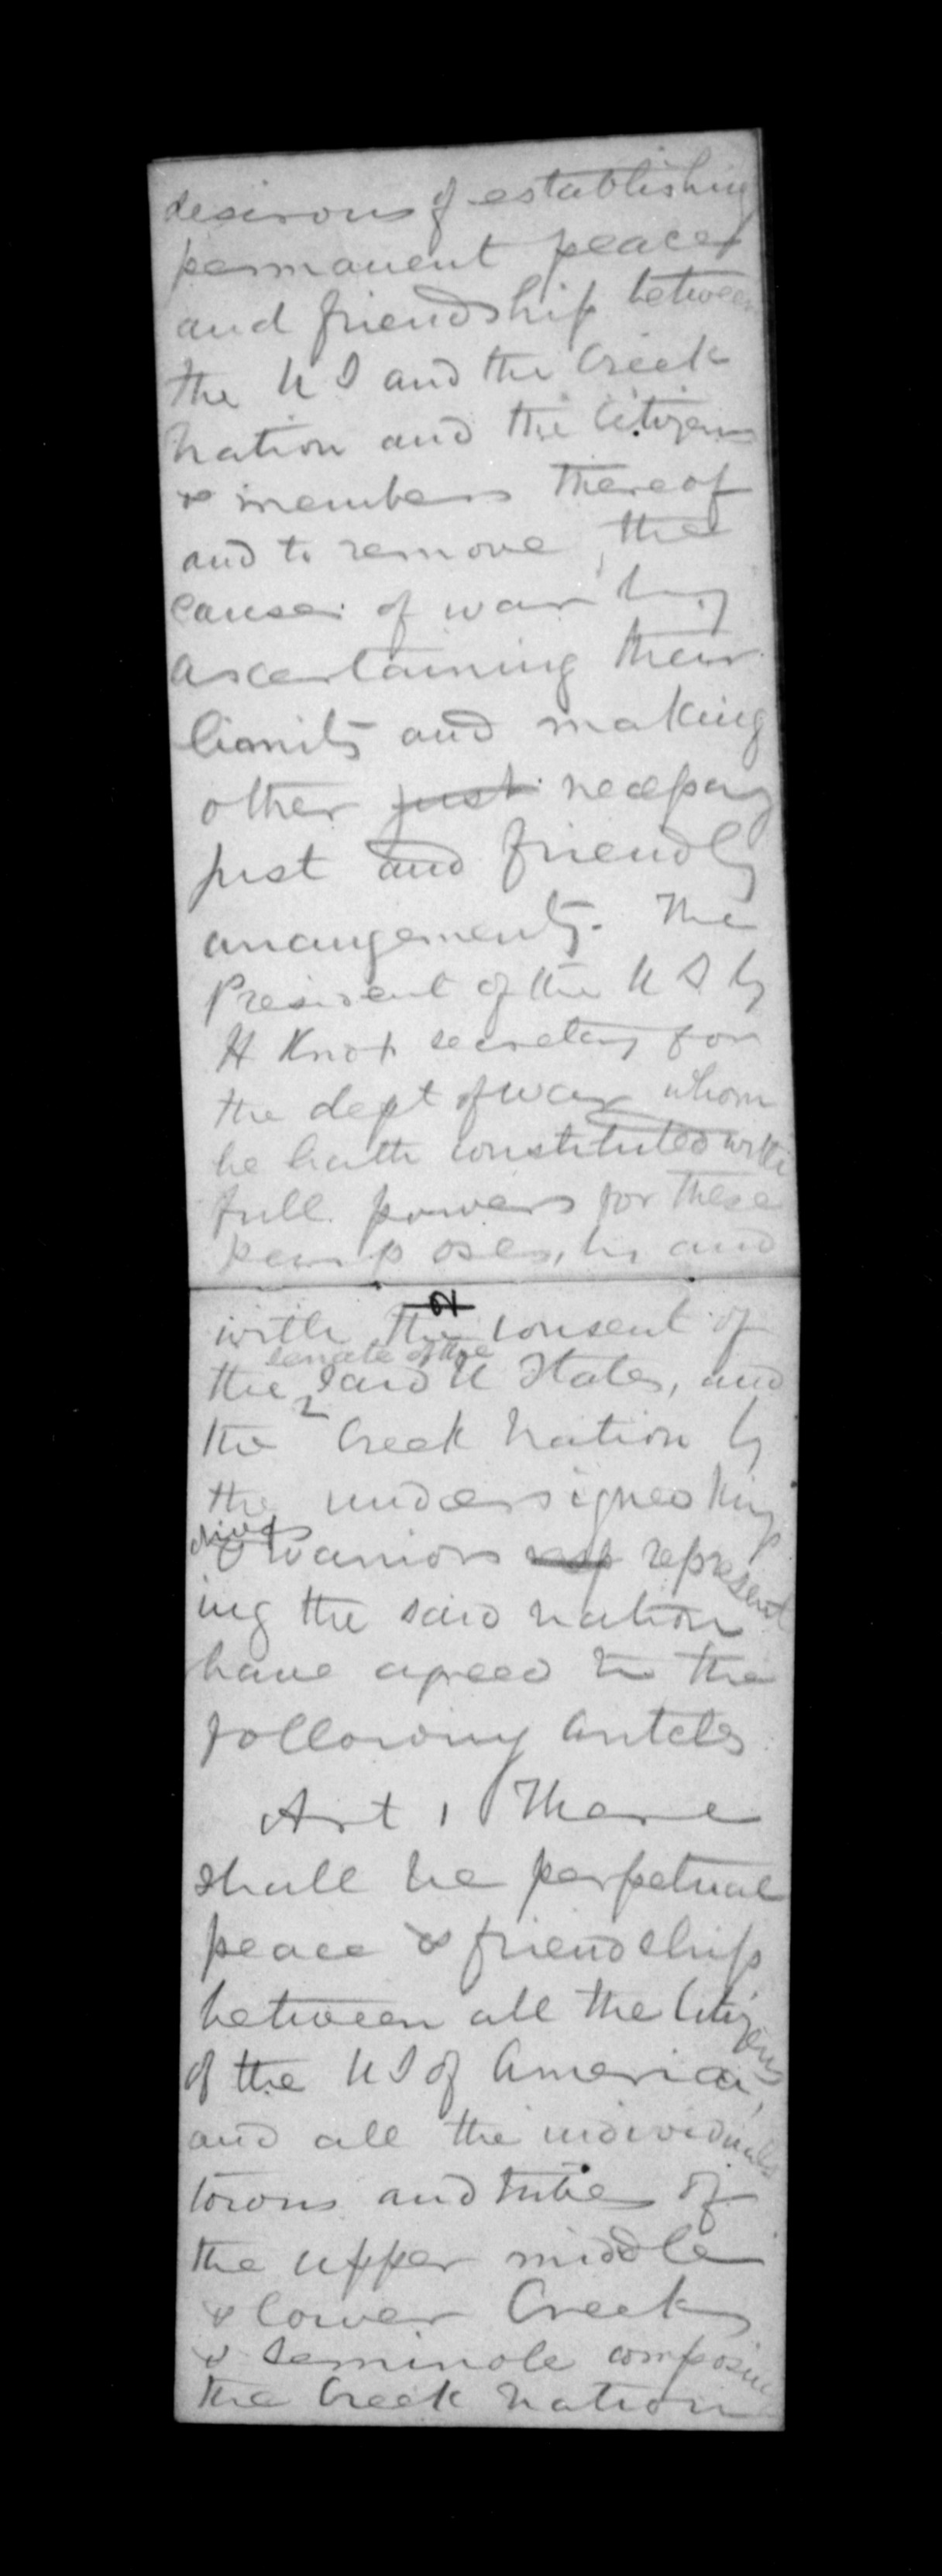 desirous of establishing
permanent peace
and friendship between
the U S and the Creek
Nation and the Citizens
& members thereof
and to remove the
causes of war by
ascertaining their
limits and making
other just necessary
just and friendly
arrangements. The
President of the U S by
H Knox secretary for
the dept of war whom
he hath constituted with
full powers for these
purposes, by and
with the consent of
senate of the
the said U States, and
the Creek Nation by
the undersigned Kings
chiefs
& Warriors represent
ing the said nation
have agreed to the
following articles
Art 1 There
shall be perpetual
peace & friendship
between all the Citizens
of the U S of America,
and all the individuals
towns and tribes of
the upper middle
& lower Creeks
& Seminole composing
the Creek Nation